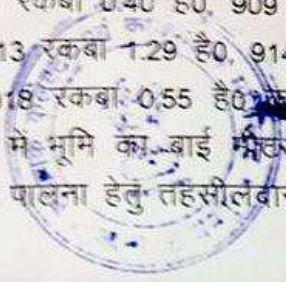 रकबा 0.40 है0, 909
13 रकबा 1.29 है0, 914
918 रकबा 0.55 है0
में भूमि का बाई
पालना हेतु तहसीलदार